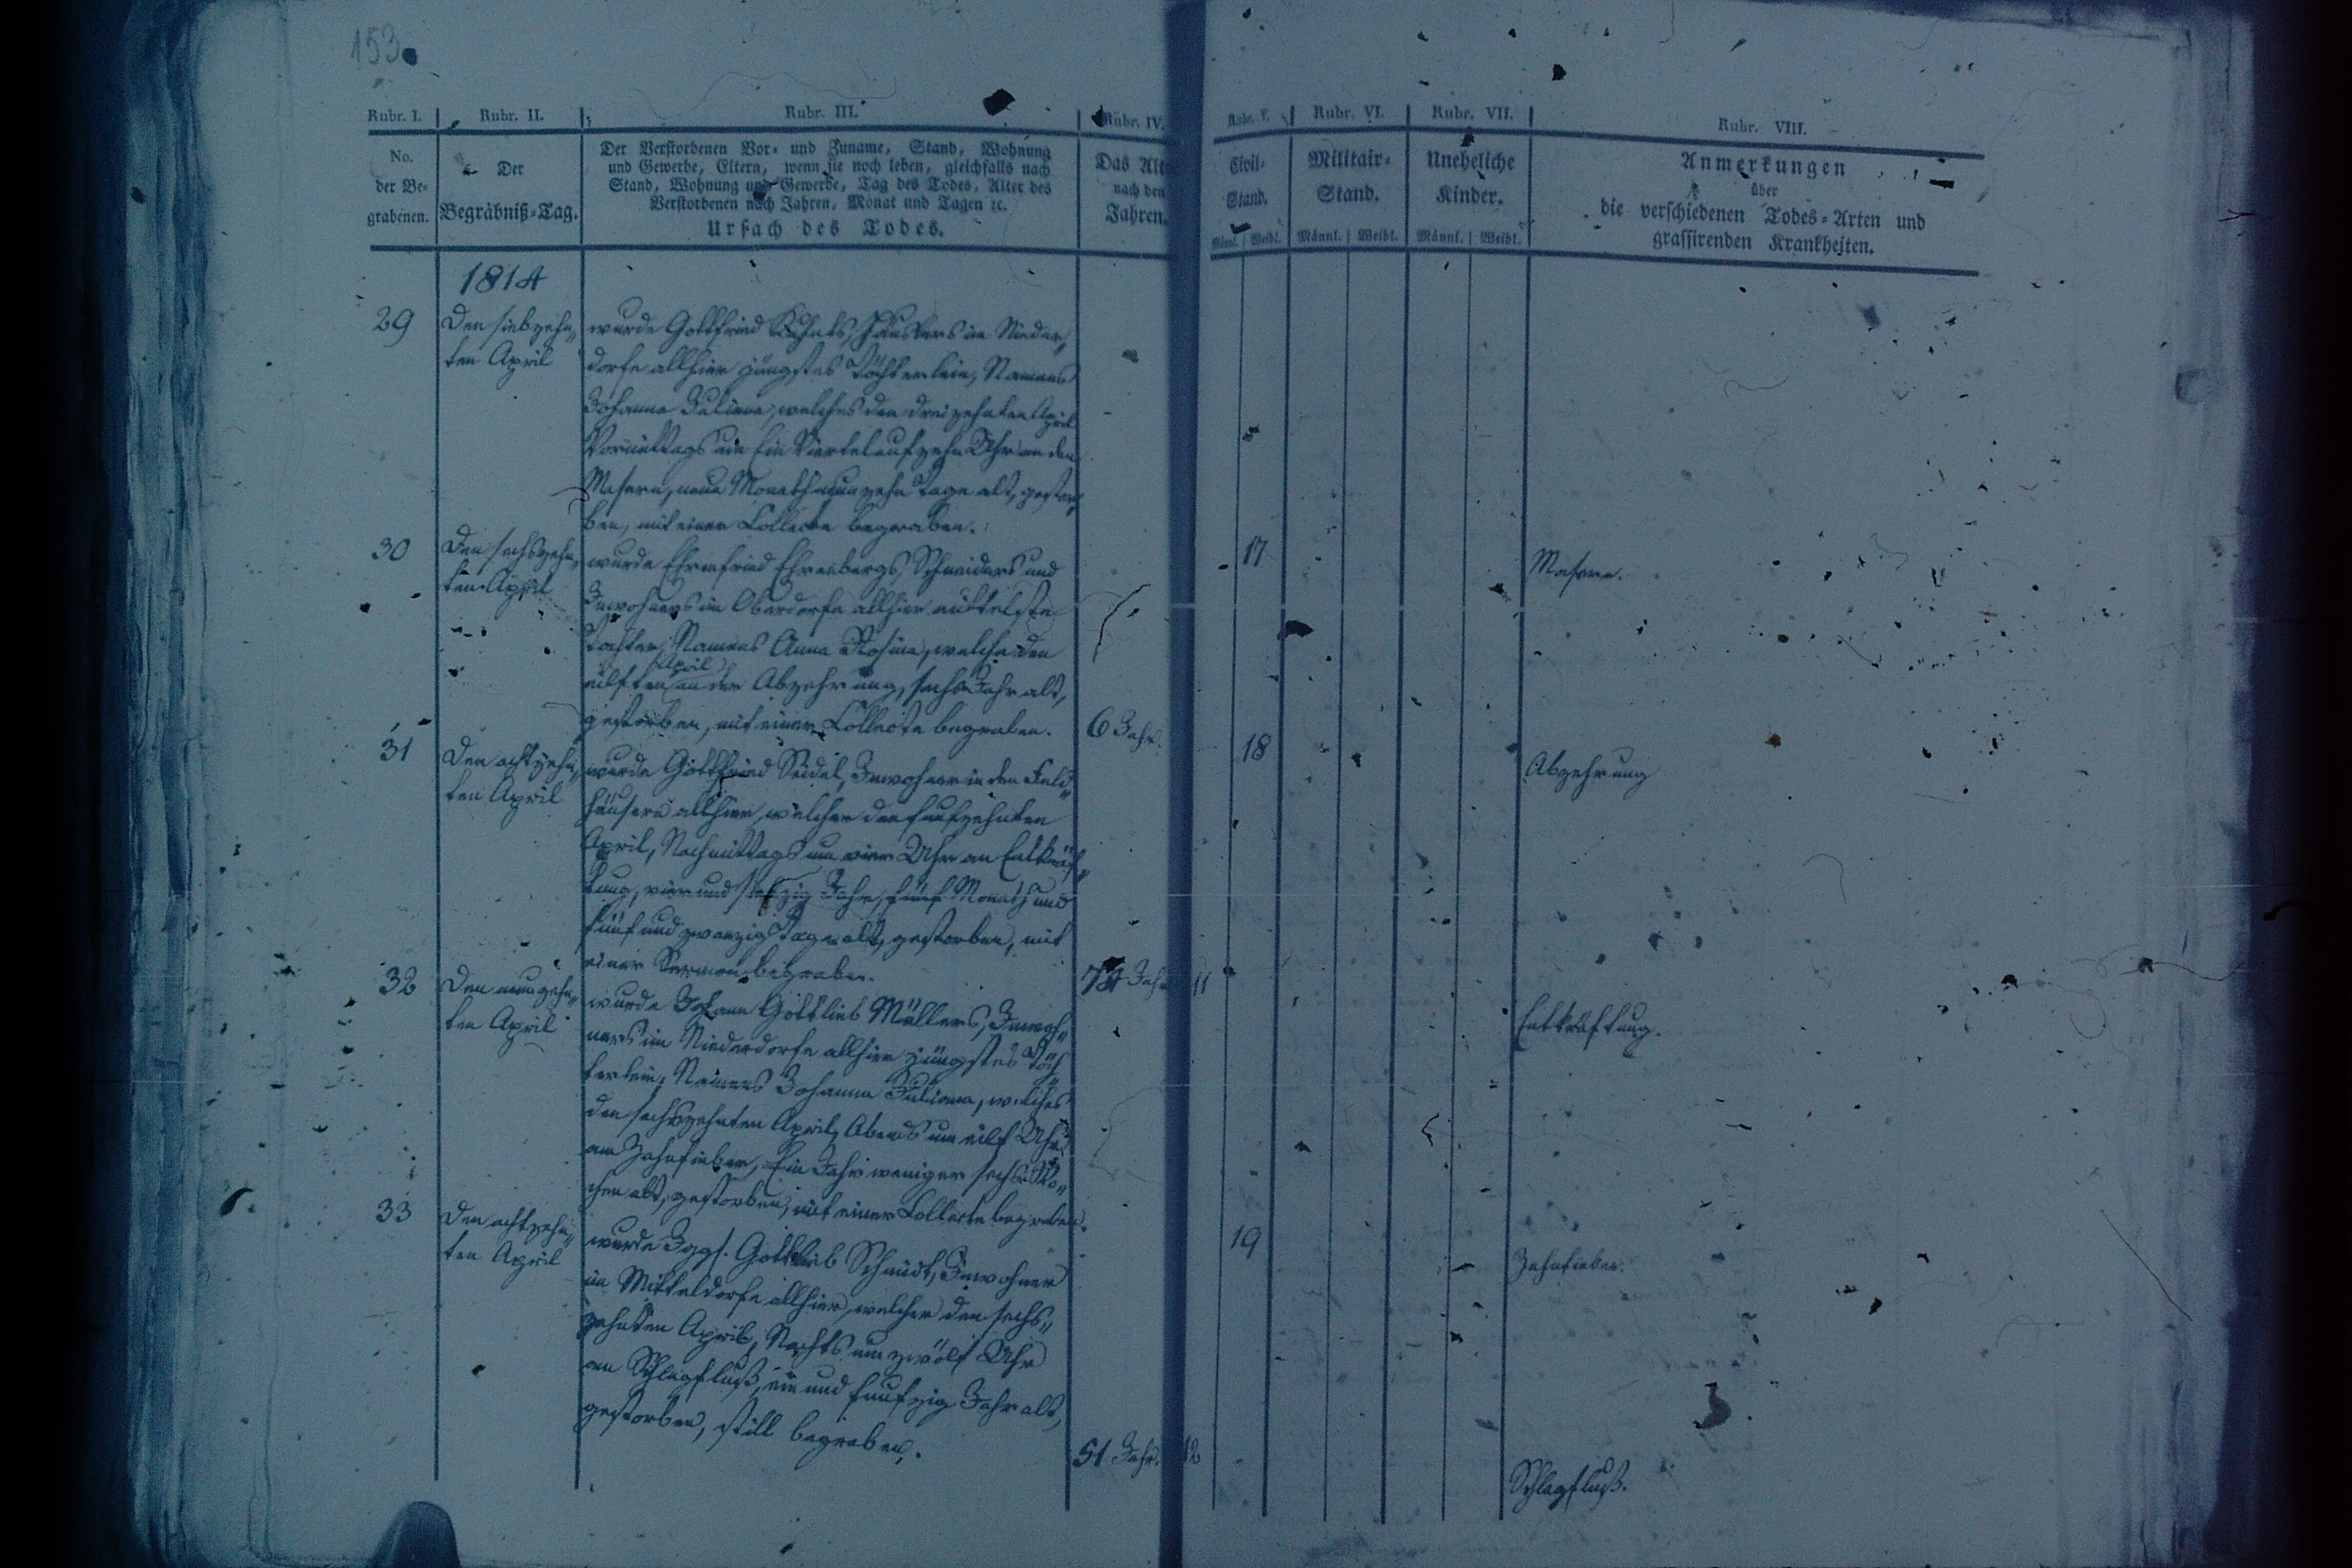 153.
Rubr. I. Rubr. II. Rubr. III. Rubr. IV. Rubr. V. Rubr. VI. Rubr. VII. Rubr. VIII.
No.
der Be-
grabenen.
Der
Begräbniß-Tag.
Der Verstorbenen Vor- und Zuname, Stand, Wohnung
und Gewerbe, Eltern, wenn sie noch leben, gleichfalls nach
Stand, Wohnung und Gewerbe, Tag des Todes, Alter des
Verstorbenen nach Jahren, Monat und Tagen ꝛc.
Ursach des Todes.
Das Alt
nach den
Jahren.
Civil-
Stand.
Männl. Weibl.
Militair-
Stand.
Männl. Weibl.
Uneheliche
Kinder.
Männl. Weibl.
Anmerkungen
über
die verschiedenen Todes-Arten und
grassirenden Krankheiten.
1814
29
Den siebzehn„
ten April
wurde Gottfried Häuslers im Nieder„
dorfe allhier jüngstes Töchterlein, Namens
Johanne Juliane, welches den dreizehnten April
Vormittags um Ein Viertel auf zehn Uhr an den
Masern, neun Monath neunzehn Tage alt, gestor„
ben, mit einer Collecte begraben.
17
Masern.
30
Den sechszehn„
ten April
wurde Ehrenfried Ehrenbergs, Schneiders und
Inwohners im Oberdorfe allhier mittelste
Tochter, Namens Anna Rosina, welche den
April
eilften an der Abzehrung, sechs Jahr alt,
gestorben, mit einer Collecte begraben.
6 Jahr.
18
Abzehrung
31
Den achtzehn„
ten April
wurde Gottfried Seidel, Inwohner in den Feld„
häusern allhier, welcher den funfzehnten
April, Nachmittags um vier Uhr an Entkräf„
tung, vier und siebzig Jahr, fünf Monath und
fünf und zwanzig Tage alt, gestorben, mit
einer Sermon begraben.
74 Jahr
11
Entkräftung.
32
Den neunzehn„
ten April
wurde Johann Gottlieb Müllers, Inwoh„
ners im Niederdorfe allhier jüngstes Töch„
terlein, Namens Johanna Juliana, welches
den sechszehnten April, Abends um eilf Uhr
am Zahnfieber, Ein Jahr weniger sechs Wo„
chen alt, gestorben, mit einer Collecte begraben.
19
Zahnfieber.
33
Den achtzehn„
ten April
wurde Jggs. Gottlieb Schmidt, Inwohner
im Mitteldorfe allhier, welcher den sechs„
zehnten April, Nachts um zwölf Uhr
am Schlagfluß, ein und funfzig Jahr alt,
gestorben, still begraben.
51 Jahr.
12
Schlagfluß.